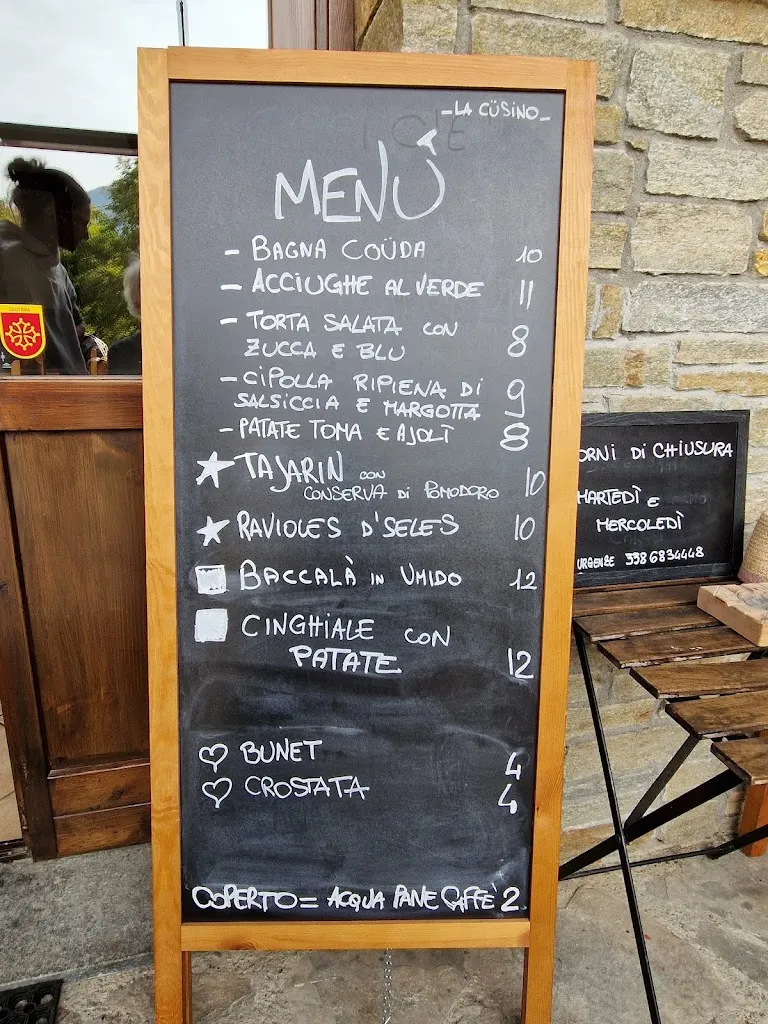 -LA CÜSINO-
MENÙ
- BAGNA COÜDA 10
- ACCIUGHE AL VERDE 11
- TORTA SALATA CON
ZUCCA E BLU 8
- CIPOLLA RIPIENA DI
SALSICCIA E MARGOTTA 9
- PATATE TOMA E AJOLÌ 8
★ TAJARIN CON
CONSERVA DI POMODORO 10
★ RAVIOLES D'SELES 10
BACCALÀ IN UMIDO 12
CINGHIALE CON
PATATE 12
♡ BUNET 4
♡ CROSTATA 4
COPERTO = ACQUA PANE CAFFÈ 2
ORNI DI CHIUSURA
MARTEDÌ E
MERCOLEDÌ
URGENZE 338 6834448